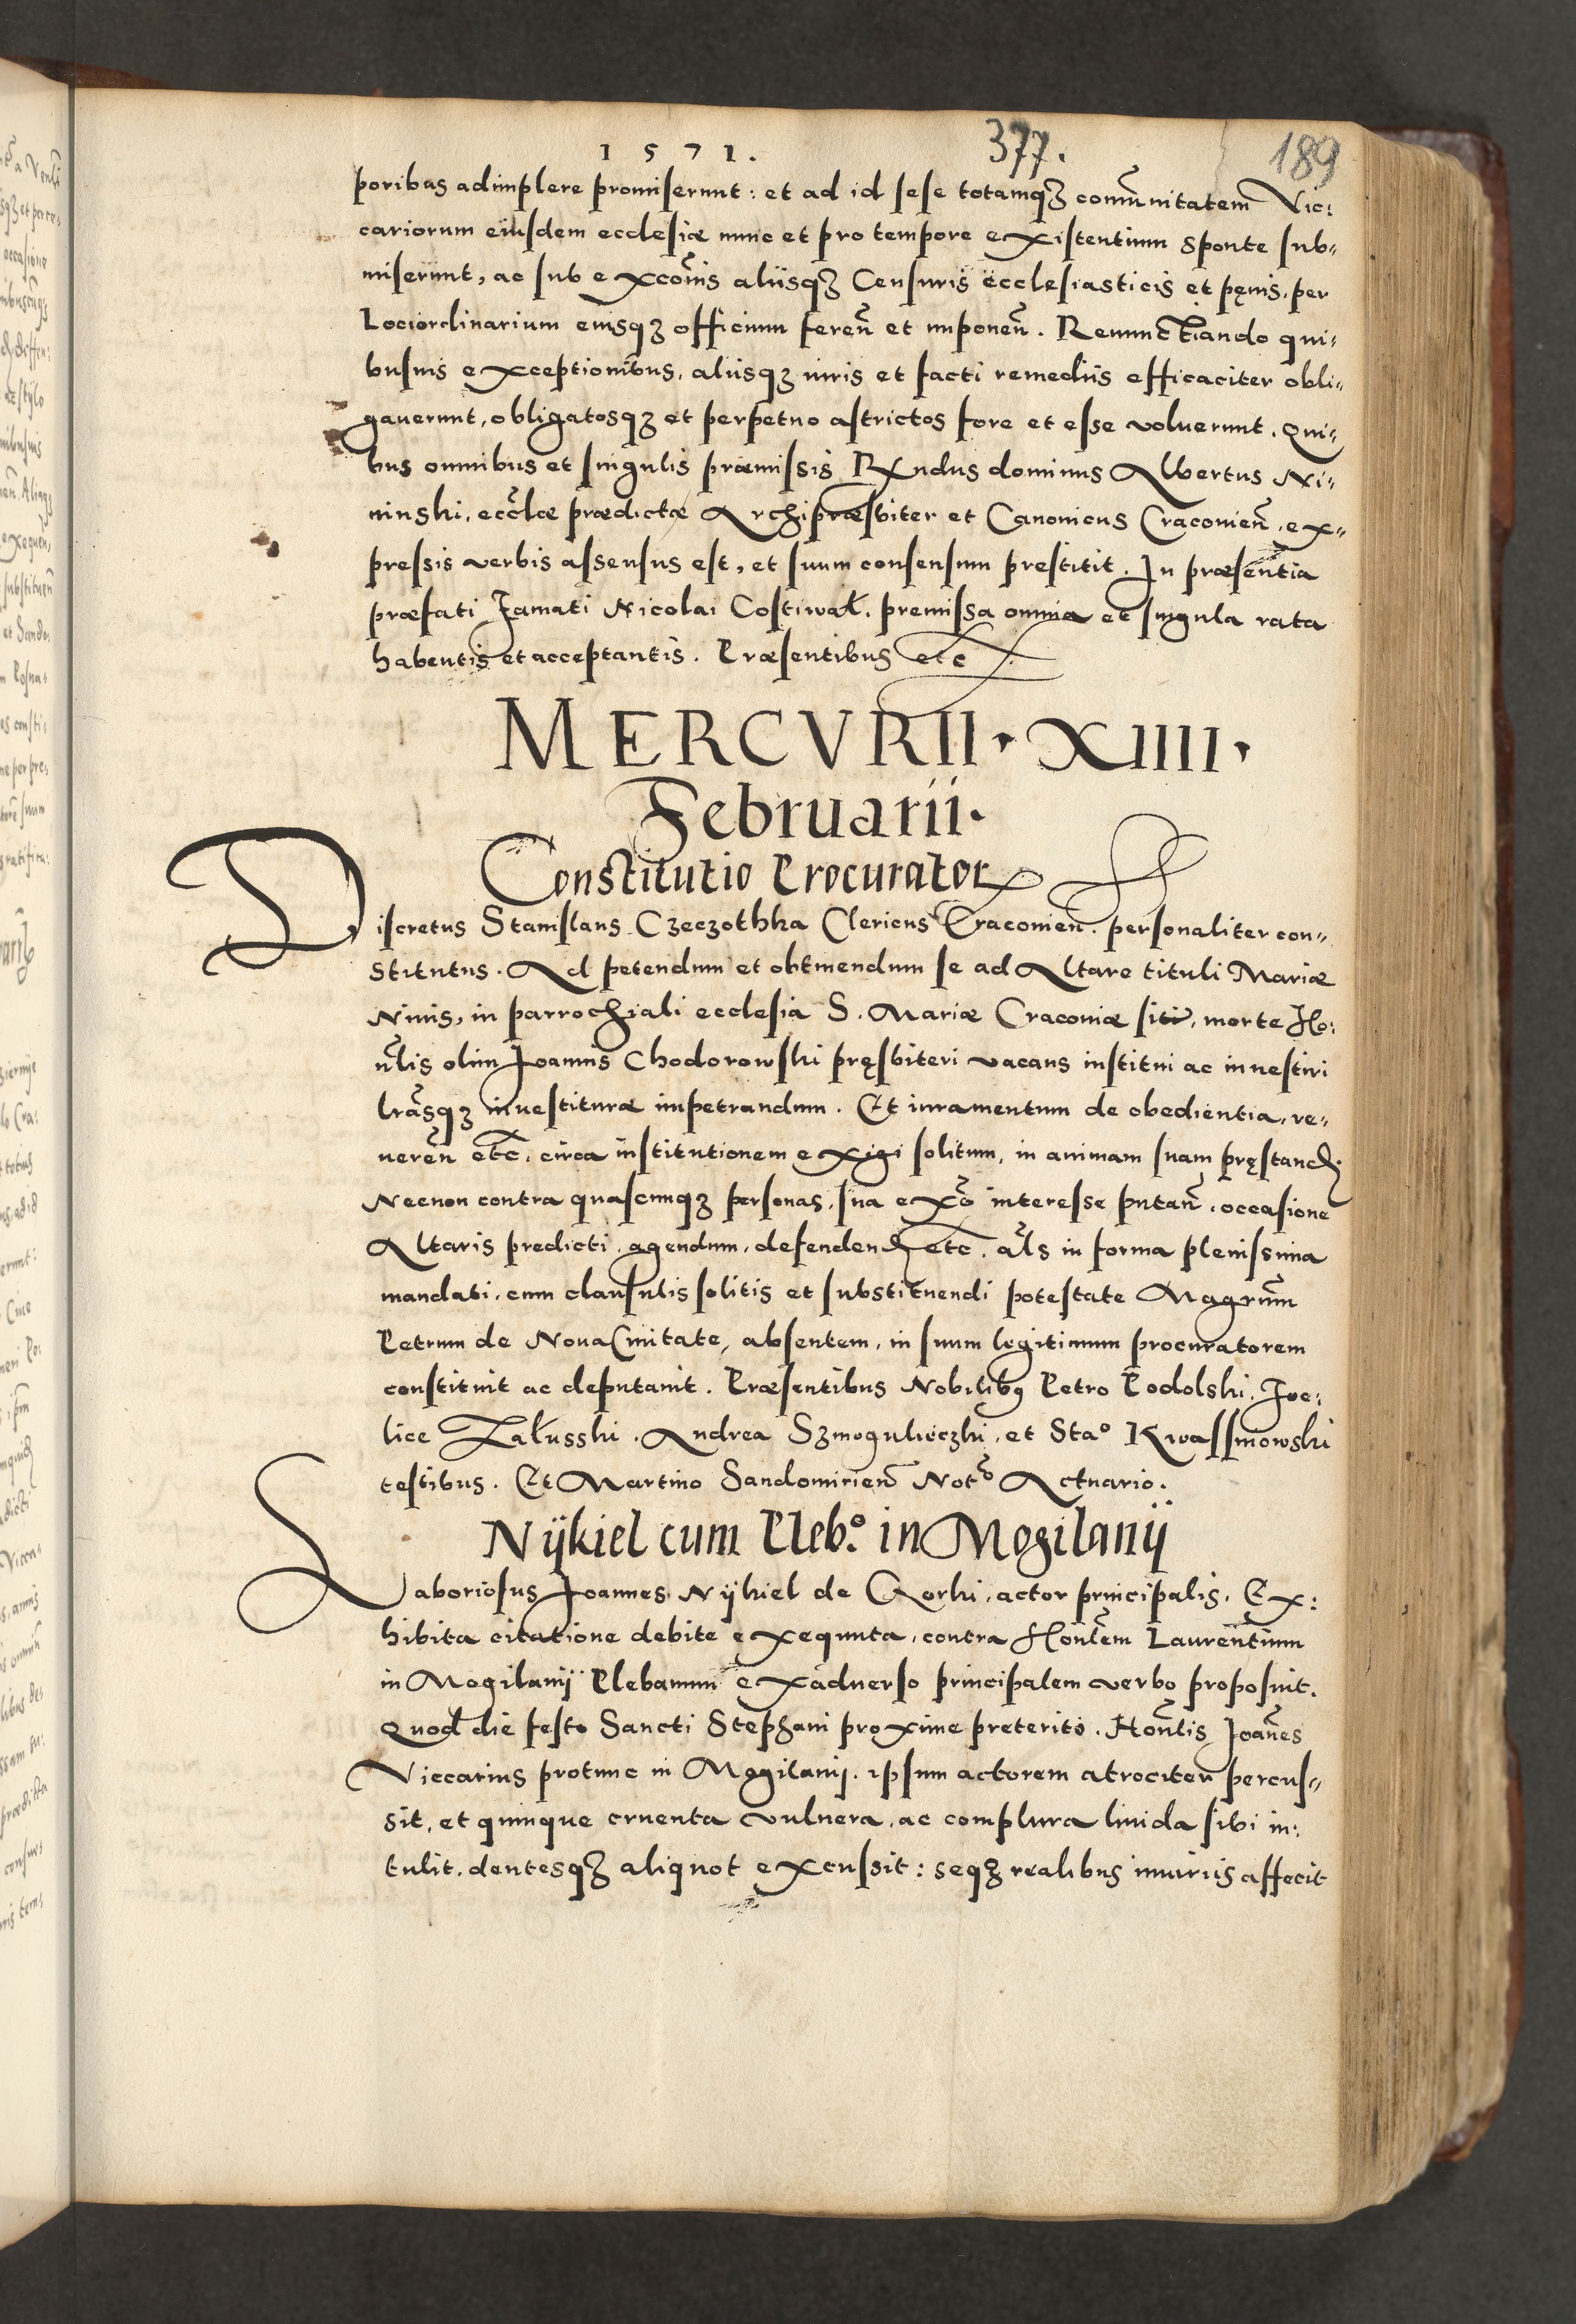 1571.
377.
189
poribus adimplere promiserunt: et ad id sese totamqꝫ comu͂nitatem Vic:
cariorum eiusdem ecclesiæ nunc et pro tempore existentium sponte sub=
miserunt, ac sub exco͂nis aliisqꝫ Censuris ecclesiasticis et pęnis, per
Lociordinarium eiusqꝫ officium feren͂ et imponen͂. Renunctiando qui=
busuis exceptionibus, aliisqꝫ iuris et facti remediis efficaciter obli=
gauerunt, obligatosqꝫ et perpetuo astrictos fore et esse voluerunt. Qui=
bus omnibus et singulis præmissis Rxndus dominus Albertus Ni=
ninski, ecc͂læ prædictæ Archipræsbiter et Canonicus Craconien͂, ex=
pressis verbis assensus est, et suum consensum prestitit. In præsentia
præfati famati Nicolai Costiwał, premissa omnia et singula rata
habentis et acceptantis. Præsentibus etc
MERCVRII. XIIII.
Februarii.
Constitutio Procurator
Discretus Stanislaus Czeczothka Clericus Craconien͂. personaliter con=
stitutus. Ad petendum et obtinendum se ad Altare tituli Mariæ
Niuis, in parrochiali ecclesia S. Mariæ Craconiæ siti, morte Ho:
n͂lis olim Joannis Chodorowski pręsbiteri vacans institui ac inuestiri
lra͂sqꝫ inuestituræ impetrandum. Et iuramentum de obedientia, re=
ueren͂ etc. circa institutionem exigi solitum, in animam suam pręstand.
Necnon contra quascunqꝫ personas, sua exo͂ interesse putan͂, occasione
Altaris predicti, agendum, defendend etc. al͂s in forma plenissima
mandati, cum clausulis solitis et substituendi potestate Magru͂m
Petrum de Noua Ciuitate, absentem, in suum legitimum procuratorem
constituit ac deputauit. Præsentibus Nobilibꝯ Petro Podolski, Joe:
lice Załusski, Andrea Szmogulieczki, et Sta° Kwassmowski
testibus. Et Martino Sandomirien͂ Not͂° Actuario.
Nÿkiel cum Pleb.° in Mogilanÿ
Laboriosus Joannes Nÿkiel de Gorki, actor principalis, Ex:
hibita citatione debite exequuta, contra Hon͂lem Laurentium
in Mogilanÿ Plebanum exaduerso principalem verbo proposuit.
Quod die festo Sancti Stephani proxime preterito. Hon͂lis Joan͂es
Viccarius protunc in Mogilanij, ipsum actorem atrociter percus=
sit, et quinque cruenta vulnera, ac complura liuida sibi in:
tulit, dentesqꝫ aliquot excussit: seqꝫ realibus iniuriis affecit